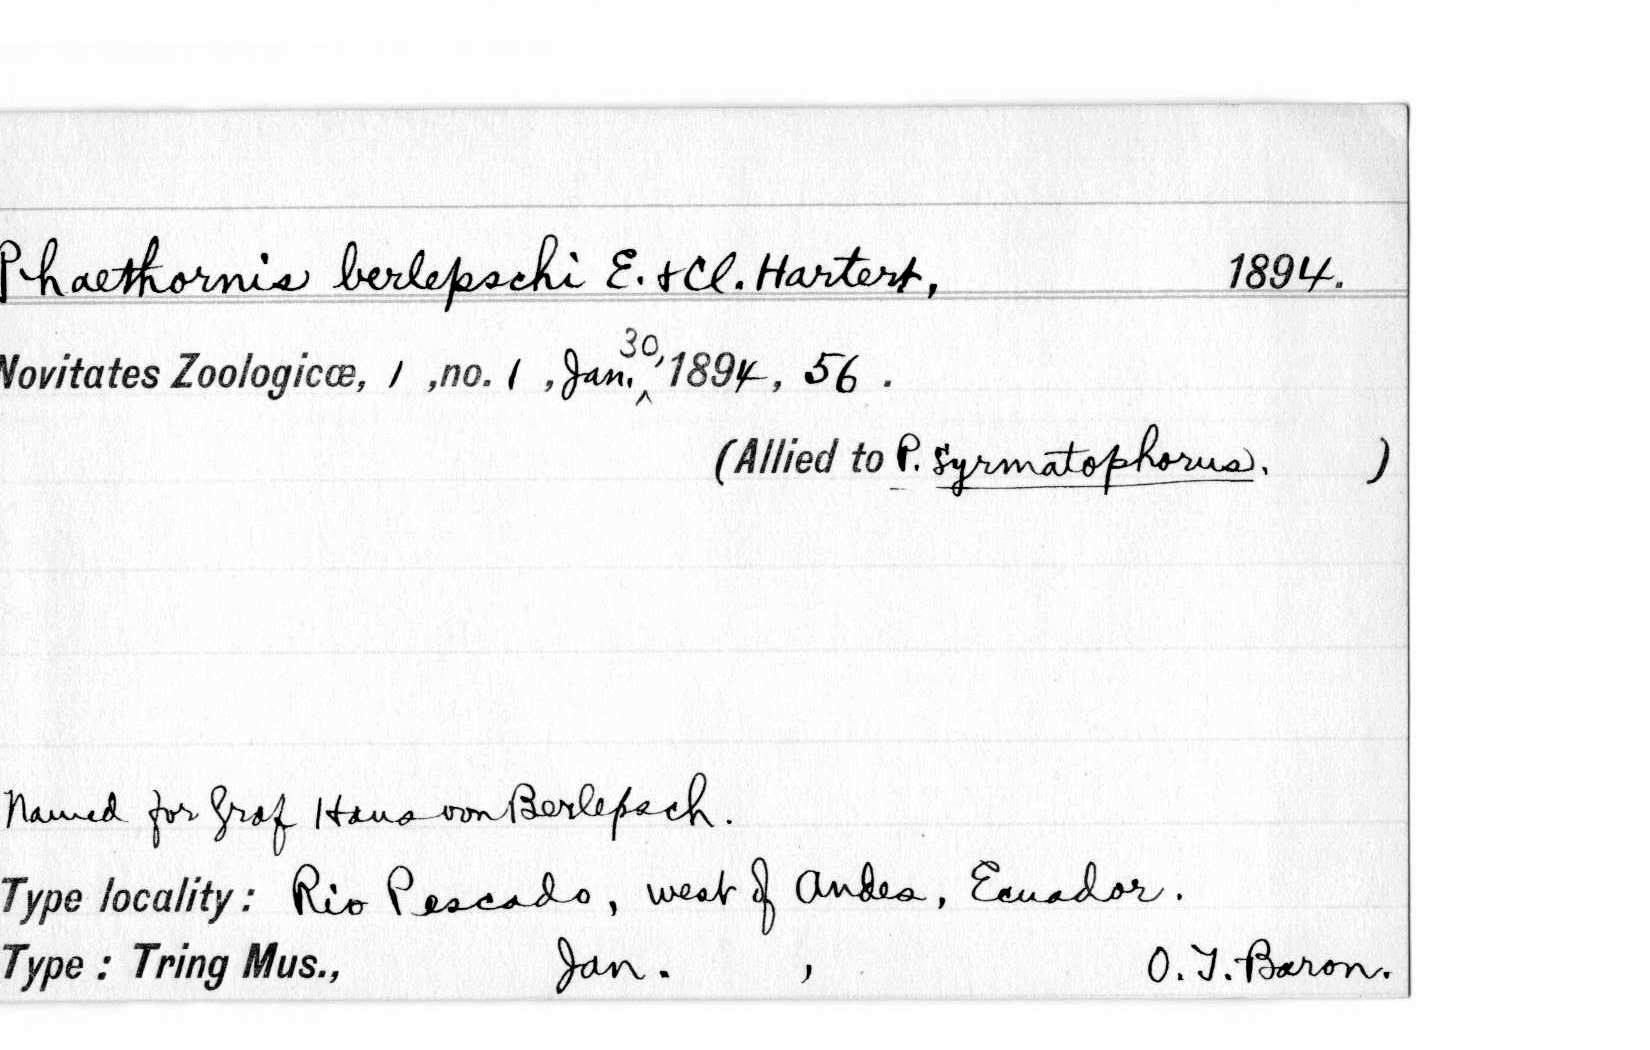 Phaethornis berlepschi E. + Cl. Hartert, 1894.
Novitates Zoologicæ, 1 ,no. 1 , Jan. 30, 1894, 56 .
(Allied to P. syrmatophorus. )
Named for Graf Hans von Berlepsch.
Type locality: Rio Pescado, west of Andes, Ecuador.
Type: Tring Mus., Jan. , O. T. Baron.